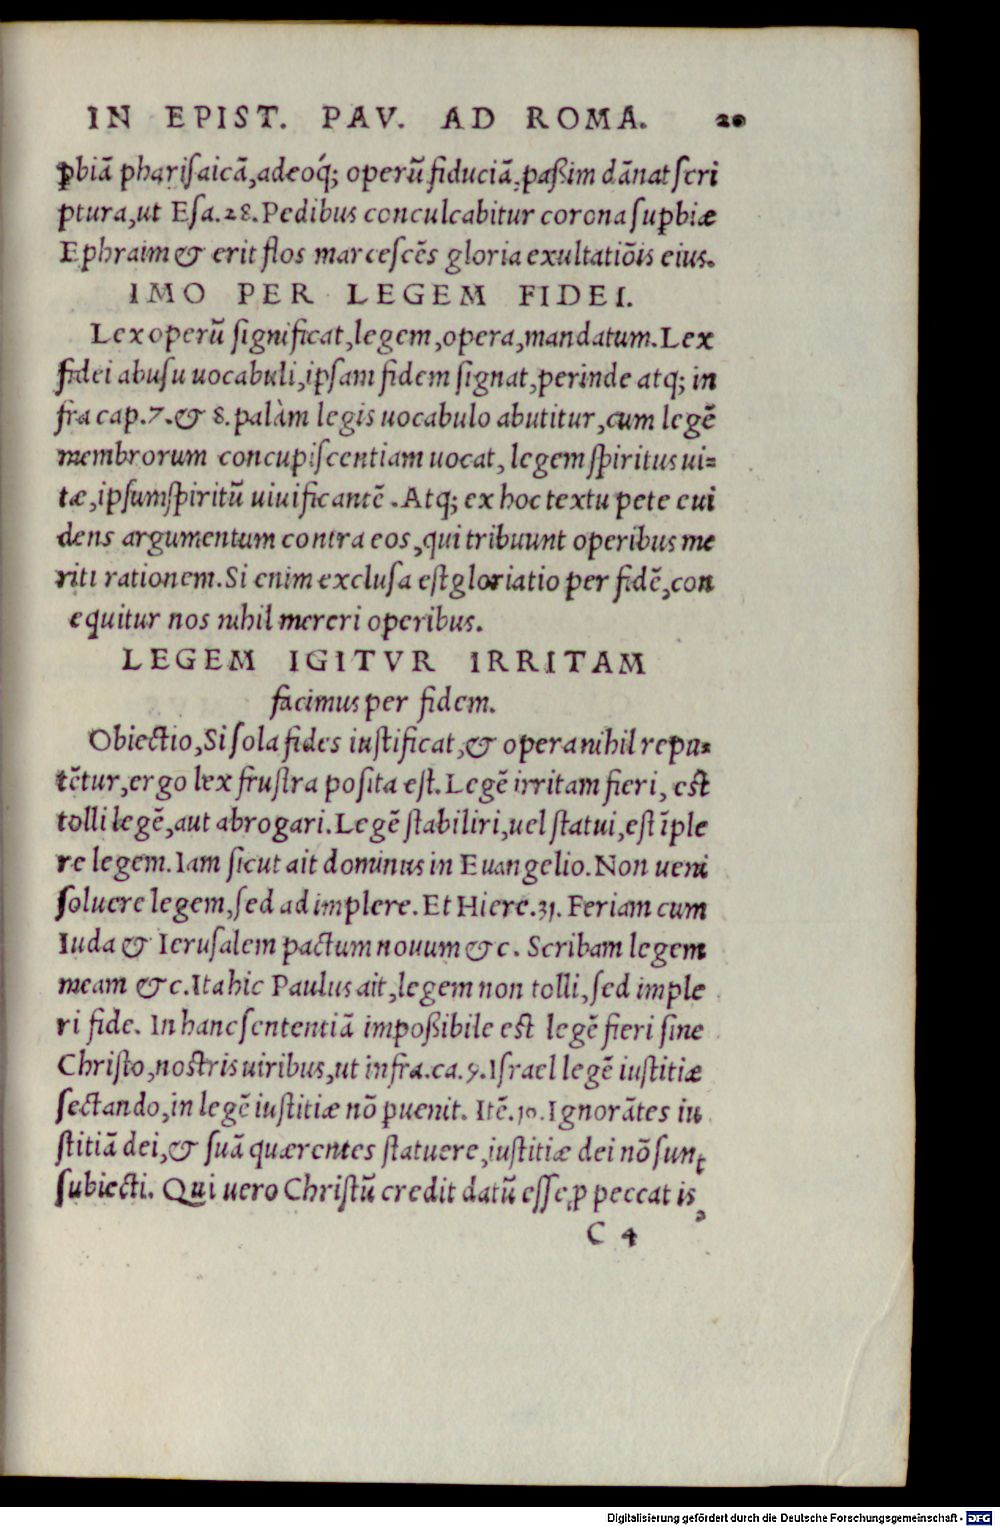 IN EPIST. PAV. AD ROMA. 20
ꝑbiã pharisaicã, adeoq́; operũ fiduciã, paßim dãnat scri
ptura, ut Esa. 28. Pedibus conculcabitur corona suꝑbiæ
Ephraim & erit flos marcescẽs gloria exultatiõis eius.
IMO PER LEGEM FIDEI.
Lex operũ significat, legem, opera, mandatum. Lex
fidei abusu uocabuli, ipsam fidem signat, perinde atq; in
fra cap. 7. & 8. palàm legis uocabulo abutitur, cum legẽ
membrorum concupiscentiam uocat, legem spiritus ui=
tæ, ipsum spiritũ uiuificantẽ. Atq; ex hoc textu pete eui
dens argumentum contra eos, qui tribuunt operibus me
riti rationem. Si enim exclusa est gloriatio per fidẽ, con
equitur nos nihil mereri operibus.
LEGEM IGITVR IRRITAM
facimus per fidem.
Obiectio, Si sola fides iustificat, & opera nihil repu=
tẽtur, ergo lex frustra posita est. Legẽ irritam fieri, est
tolli legẽ, aut abrogari. Legẽ stabiliri, uel statui, est ĩple
re legem. Iam sicut ait dominus in Euangelio. Non ueni
soluere legem, sed ad implere. Et Hiere. 31. Feriam cum
Iuda & Ierusalem pactum nouum &c. Scribam legem
meam &c. Ita hic Paulus ait, legem non tolli, sed imple
ri fide. In hanc sententiã impoßibile est legẽ fieri sine
Christo, nostris uiribus, ut infra. ca. 9. Israel legẽ iustitiæ
sectando, in legẽ iustitiæ nõ ꝑuenit. Itẽ. 10. Ignorãtes iu
stitiã dei, & suã quærentes statuere, iustitiæ dei nõ sunt
subiecti. Qui uero Christũ credit datũ esse ꝓ peccatis,
C 4
Digitalisierung gefördert durch die Deutsche Forschungsgemeinschaft - DFG